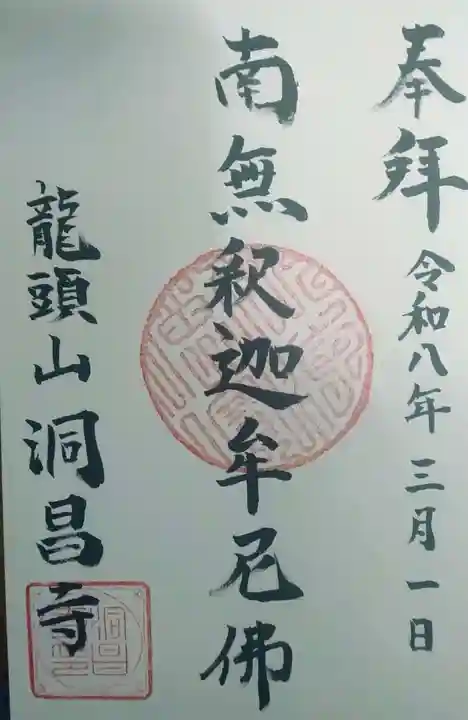 奉拜 令和八年 三月一日
南無釈迦牟尼佛
龍頭山 洞昌寺